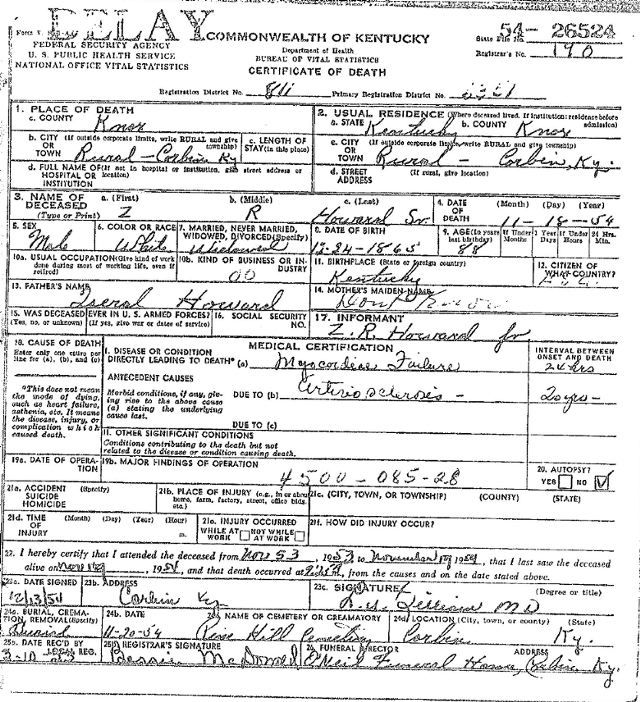 DELAY
Form V
FEDERAL SECURITY AGENCY
U. S. PUBLIC HEALTH SERVICE
NATIONAL OFFICE VITAL STATISTICS
COMMONWEALTH OF KENTUCKY
Department of Health
BUREAU OF VITAL STATISTICS
CERTIFICATE OF DEATH
State File No. 54- 26524
Registrar's No. 190
Registration District No. 811 Primary Registration District No.
1. PLACE OF DEATH
a. COUNTY Knox
b. CITY (If outside corporate limits, write RURAL and give township) OR TOWN Rural - Corbin Ky
c. LENGTH OF STAY (in this place)
d. FULL NAME OF (If not in hospital or institution, give street address or location) HOSPITAL OR INSTITUTION
2. USUAL RESIDENCE (Where deceased lived. If institution: residence before admission)
a. STATE Kentucky b. COUNTY Knox
c. CITY (If outside corporate limits, write RURAL and give township) OR TOWN Rural - Corbin, Ky.
d. STREET ADDRESS (If rural, give location)
3. NAME OF DECEASED (Type or Print) a. (First) Z b. (Middle) R c. (Last) Howard Sr.
4. DATE OF DEATH (Month) (Day) (Year) 11-18-54
5. SEX Male
6. COLOR OR RACE White
7. MARRIED, NEVER MARRIED, WIDOWED, DIVORCED (Specify) Widowed
8. DATE OF BIRTH 12-24-1865
9. AGE (In years last birthday) 88 If Under 1 Year Months Days If Under 24 Hrs. Hours Min.
10a. USUAL OCCUPATION (Give kind of work done during most of working life, even if retired)
10b. KIND OF BUSINESS OR INDUSTRY 00
11. BIRTHPLACE (State or foreign country) Kentucky
12. CITIZEN OF WHAT COUNTRY?
13. FATHER'S NAME Iseral Howard
14. MOTHER'S MAIDEN NAME Dont Know
15. WAS DECEASED EVER IN U. S. ARMED FORCES? (Yes, no, or unknown) (If yes, give war or dates of service)
16. SOCIAL SECURITY NO.
17. INFORMANT Z. R. Howard Jr
18. CAUSE OF DEATH
Enter only one cause per line for (a), (b), and (c)
*This does not mean the mode of dying, such as heart failure, asthenia, etc. It means the disease, injury, or complication which caused death.
MEDICAL CERTIFICATION
I. DISEASE OR CONDITION DIRECTLY LEADING TO DEATH* (a) Myocardeal Failure
INTERVAL BETWEEN ONSET AND DEATH
24 hrs
ANTECEDENT CAUSES
Morbid conditions, if any, giving rise to the above cause (a) stating the underlying cause last.
DUE TO (b) Arteriosclerosis - 20 yrs -
DUE TO (c)
II. OTHER SIGNIFICANT CONDITIONS
Conditions contributing to the death but not related to the disease or condition causing death.
19a. DATE OF OPERATION
19b. MAJOR FINDINGS OF OPERATION
4500-085-28
20. AUTOPSY? YES NO
21a. ACCIDENT (Specify) SUICIDE HOMICIDE
21b. PLACE OF INJURY (e.g., in or about home, farm, factory, street, office bldg. etc.)
21c. (CITY, TOWN, OR TOWNSHIP) (COUNTY) (STATE)
21d. TIME OF INJURY (Month) (Day) (Year) (Hour) m.
21e. INJURY OCCURRED WHILE AT WORK NOT WHILE AT WORK
21f. HOW DID INJURY OCCUR?
22. I hereby certify that I attended the deceased from Nov 53, 1953 to November 18, 1954, that I last saw the deceased
alive on Nov 18, 1954, and that death occurred at from the causes and on the date stated above.
23a. DATE SIGNED 12/13/54
23b. ADDRESS Corbin Ky
23c. SIGNATURE (Degree or title) MD
24a. BURIAL, CREMATION, REMOVAL (Specify) Burial
24b. DATE 11-20-54
24c. NAME OF CEMETERY OR CREAMATORY Rose Hill Cemetery
24d. LOCATION (City, town, or county) (State) Corbin Ky.
25a. DATE REC'D BY LOCAL REG. 3-10
25b. REGISTRAR'S SIGNATURE Bessie McDonald
26. FUNERAL DIRECTOR ADDRESS O'Neil Funeral Home, Corbin Ky.